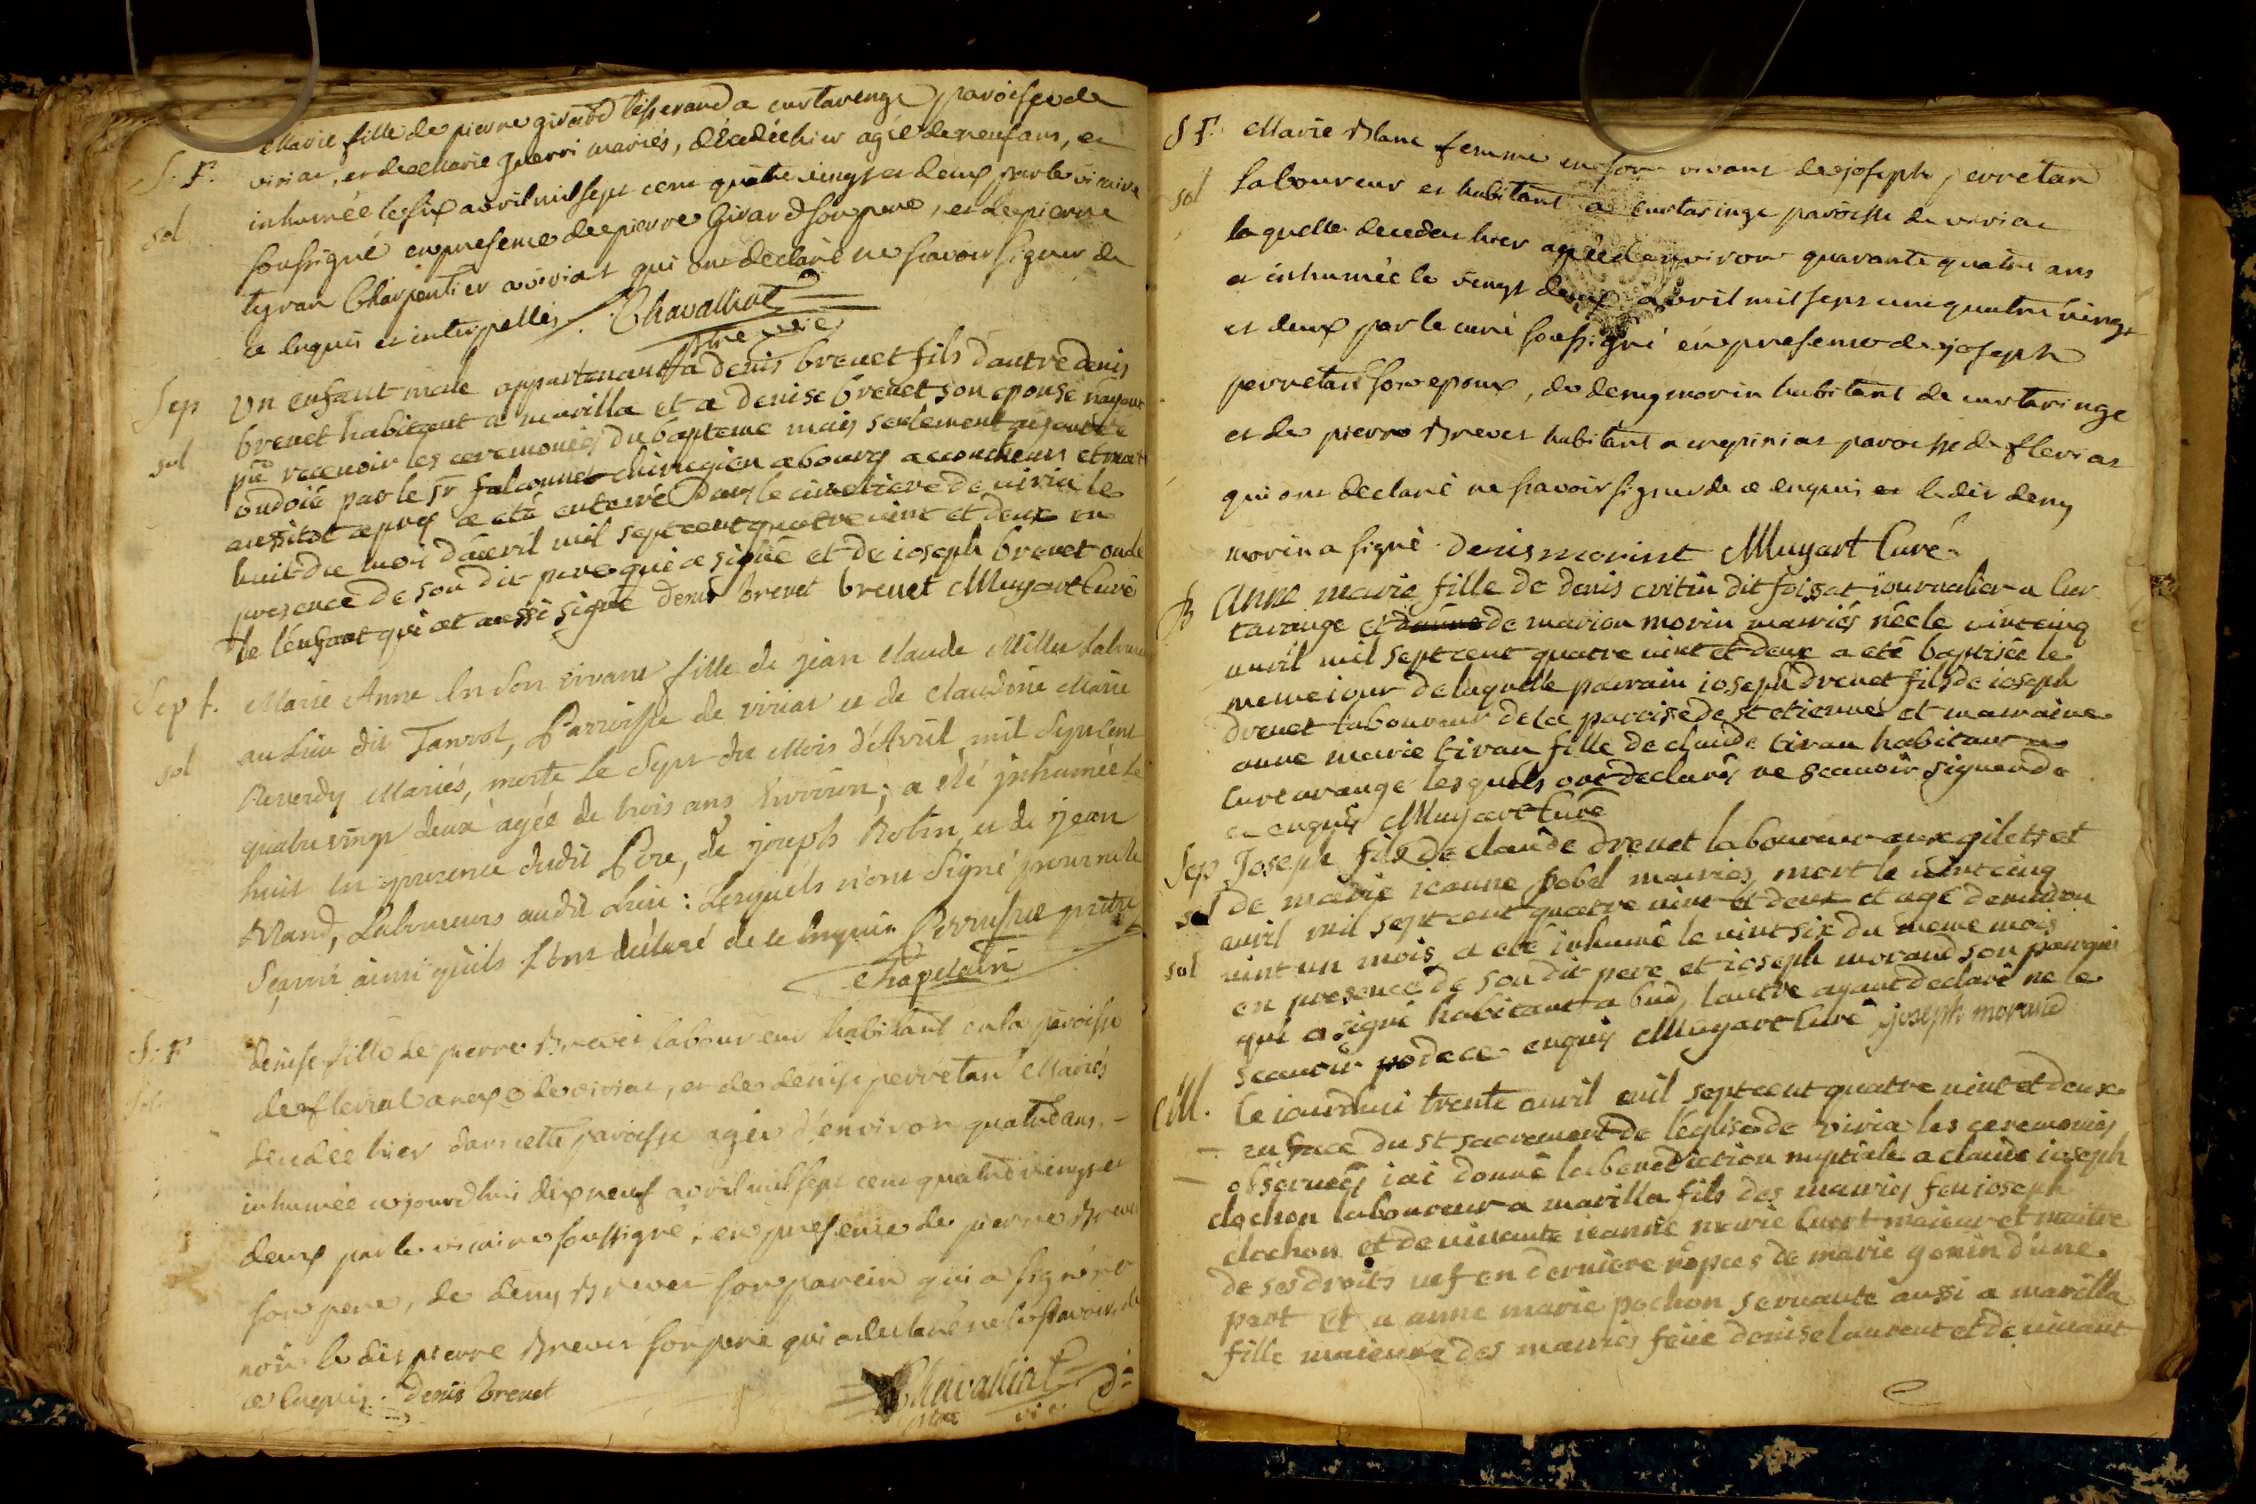 Marie fille de pierre girard tisserand a curtarenge paroisse de
S. F. viriat, et de Marie Guerri mariés, décédée hier agée de neuf ans, et
sol inhumée le six avril mil sept cent quatre vingt et deux par le vicaire
soussigné en presence de pierre Girard son pere, et de pierre
charpentier a viriat qui ont declaré ne scavoir signer de
ce enquis et interpellés Chavalliat
ptre vic
Sep un enfant male appartenant a denis brevet fils dautre denis
sol brevet habitant a marilla et a denise brevet son epouse nayant
pû recevoir les ceremonies du bapteme mais seulement
ondoié par le sr falconnet chirurgien a bourg accoucheur et mort
aussitot apres a été enterré dans le cimetiere de viria le
huit du mois d'avril mil sept cent quatre vint et deux en
presence de son dit pere qui a signé et de ioseph brevet oncle
de l'enfant qui at aussi signé denis brevet brevet Muyart Curé
Sep f. Marie Anne en son vivant fille de jean claude Millu Laboureur
sol au Lieu dit Tanvol, Parroisse de viriat et de claudine Marie
Reverdy Mariés, morte Le Sept du Mois d'Avril mil Sept Cent
quatre vingt deux agée de trois ans Environ; a été jnhumée Le
huit en presence dudit Pere, de joseph Robin et de jean
Laboureurs audit Lieu: Lesquels n'ont Signé pour ne le
Sçavoir ainsi qu'ils l'ont déclaré de ce Enquis. Perruque prêtre
Chapelain
S. F denise fille de pierre Brevet laboureur habitant en la paroisse
de flevial anexe de viriat, et de denise perretan Mariés
décédée hier dans cette paroisse agée d'environ quatre ans,
inhumée aujourdhui dix neuf avril mil sept cent quatre vingt et
deux par le vicaire soussigné, en presence de pierre Brevet
son pere, de deny Brevet son parein qui a signé et
non ledit pierre Brevet son pere qui a declaré ne le sçavoir de
ce enquis. denis brevet Chavalliat
ptre vic
S F. Marie Blanc femme en son vivant de joseph perretan
sol laboureur et habitant a curtaringe paroisse de viriat
laquelle decedée hier agée d'environ quarante quatre ans
a inhumée le vingt deux avril mil sept cent quatre vingt
et deux par le curé soussigné en presence de joseph
perretan son epoux, de deny morin habitant de curtaringe
et de pierre Brevet habitant a crepinias paroisse de flevias
qui ont declaré ne scavoir signer de ce enquis et ledit deny
morin a signé. denis morint Muyart Curé
B Anne marie fille de denis critin dit foisat iournalier a Cur
tarange et de marion morin mariés née le vint cinq
avril mil sept cent quatre vint et deux a eté baptisée le
meme iour de laquelle parrain ioseph drevet fils de ioseph
drevet laboureur de la paroisse de st etienne et marraine
anne marie tivan fille de claude tivan habitant a
Curtarange lesquels ont declarés ne scavoir signer de
ce enquis Muyart Curé
Sep Joseph fils de claude drevet laboureur aux gilets et
sol de marie ieanne pobel mariés mort le vint cinq
avril mil sept cent quatre vint et deux et agé d'environ
sol vint un mois a eté inhumé le vint six du meme mois
en presence de son dit pere et ioseph morand son
qui a signé habitant a bud, lautre ayant declaré ne le
scavoir de ce enquis Muyart Curé joseph morand
M. Le iourdhui trente avril mil sept cent quatre vint et deux
en face du st sacrement de l'église de viria les ceremonies
observées i'ai donné la benediction nuptiale a claude ioseph
clochon laboureur a marilla fils des mariés feu ioseph
clochon et de vivante ieanne marie Cuet maieur et maitre
de ses droits vef en derniere nopces de marie gonin d'une
part et a anne marie pochon servante aussi a marilla
fille maieure des mariés feüe denise laurent et de vivant